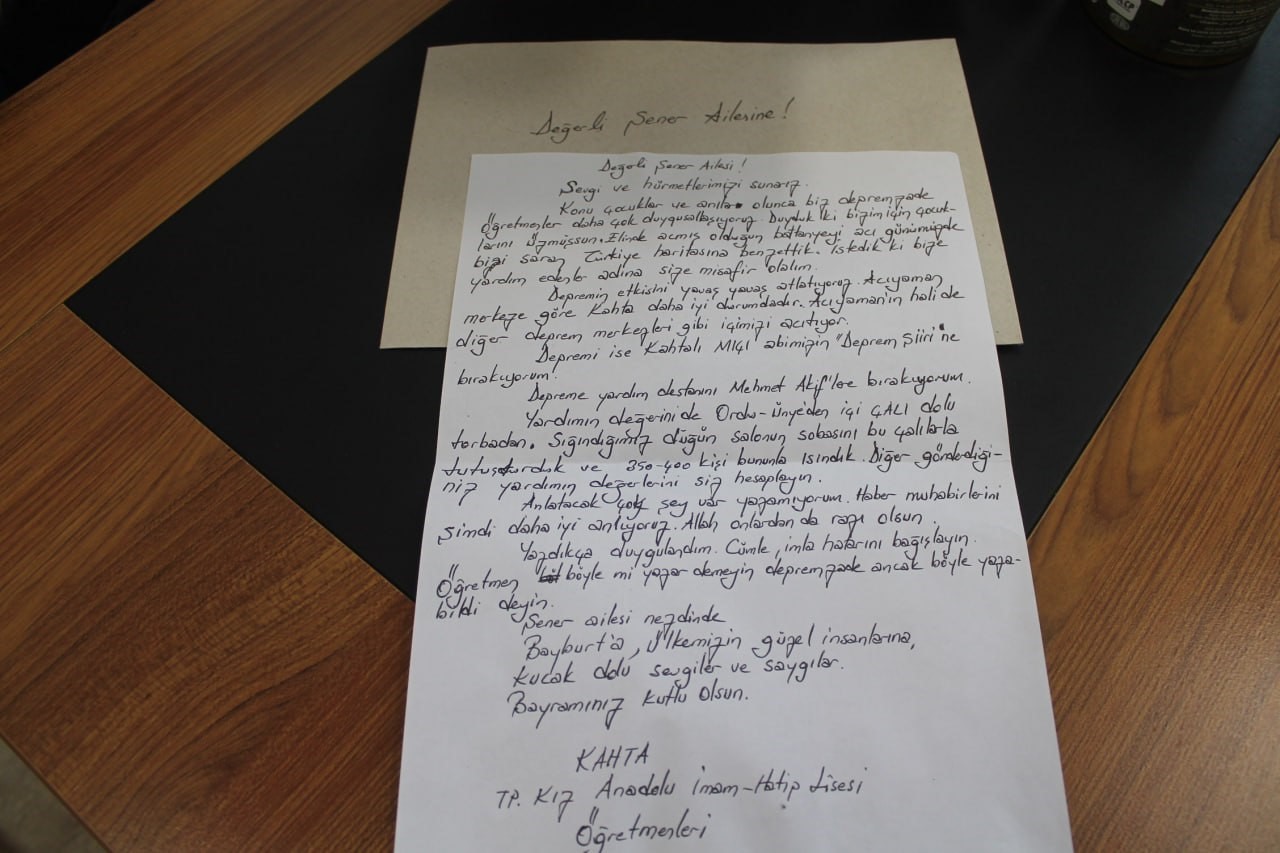 Değerli Şener Ailesine!
Değerli Şener Ailesi!
Sevgi ve hürmetlerimizi sunarız.
Konu çocuklar ve anılar olunca biz depremzede
Öğretmenler daha çok duygusallaşıyoruz. Duyduk ki bizim için çocuk-
larını üzmüşsün. Elinde açmış olduğun battaniyeyi acı günümüzde
bizi saran Türkiye haritasına benzettik. İstedik ki bize
yardım edenler adına size misafir olalım.
Depremin etkisini yavaş yavaş atlatıyoruz. Acıyaman
merkeze göre Kahta daha iyi durumdadır. Acıyaman'ın hali de
diğer deprem merkezleri gibi içimizi acıtıyor.
Depremi ise Kahtalı MIÇI abimizin "Deprem Şiiri"ne
bırakıyorum.
Depreme yardım destanını Mehmet Akif'lere bırakıyorum.
Yardımın değerini de Ordu-Ünye'den içi ÇALI dolu
torbadan. Sığındığımız düğün salonun sobasını bu çalılarla
tutuşturduk ve 350-400 kişi bununla ısındık. Diğer gönderdiği-
niz yardımın değerlerini siz hesaplayın.
Anlatacak çok şey var yazamıyorum. Haber muhabirlerini
şimdi daha iyi anlıyoruz. Allah onlardan da razı olsun.
Yazdıkça duygulandım. Cümle, imla hatarını bağışlayın.
Öğretmen böyle mi yazar demeyin depremzede ancak böyle yaza-
bildi deyin.
Şener ailesi nezdinde
Bayburt'a, Ülkemizin güzel insanlarına,
kucak dolu sevgiler ve saygılar.
Bayramınız kutlu olsun.
KAHTA
TP. Kız Anadolu İmam-Hatip Lisesi
Öğretmenleri